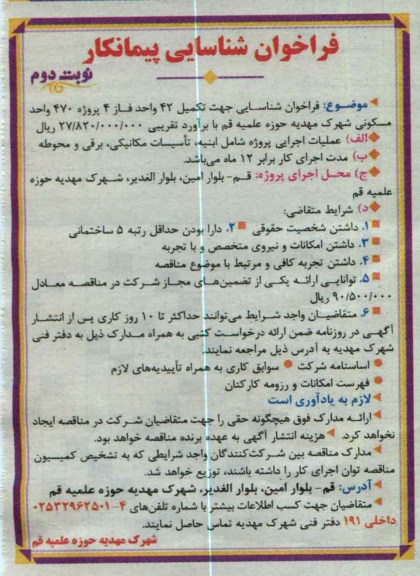 فراخوان شناسایی پیمانکار
نوبت دوم
موضوع: فراخوان شناسایی جهت تکمیل ۴۲ واحد فاز ۴ پروژه ۴۷۰ واحد
مسکونی شهرک مهدیه حوزه علمیه قم با برآورد تقریبی ۲۷/۸۲۰/۰۰۰/۰۰۰ ریال
الف) عملیات اجرایی پروژه شامل ابنیه، تأسیسات مکانیکی، برقی و محوطه
ب) مدت اجرای کار برابر ۱۲ ماه می‌باشد.
ج) محل اجرای پروژه: قم- بلوار امین، بلوار الغدیر، شهرک مهدیه حوزه
علمیه قم
د) شرایط متقاضی:
۱. داشتن شخصیت حقوقی ۲. دارا بودن حداقل رتبه ۵ ساختمانی
۳. داشتن امکانات و نیروی متخصص و با تجربه
۴. داشتن تجربه کافی و مرتبط با موضوع مناقصه
۵. توانایی ارائه یکی از تضمین‌های مجاز شرکت در مناقصه معادل
۹۰/۵۰۰/۰۰۰ ریال
۶. متقاضیان واجد شرایط می‌توانند حداکثر تا ۱۰ روز کاری پس از انتشار
آگهی در روزنامه ضمن ارائه درخواست کتبی به همراه مدارک ذیل به دفتر فنی
شهرک مهدیه به آدرس ذیل مراجعه نمایند.
اساسنامه شرکت سوابق کاری به همراه تأییدیه‌های لازم
فهرست امکانات و رزومه کارکنان
لازم به یادآوری است
ارائه مدارک فوق هیچگونه حقی را جهت متقاضیان شرکت در مناقصه ایجاد
نخواهد کرد. هزینه انتشار آگهی به عهده برنده مناقصه خواهد بود.
مدارک مناقصه بین شرکت‌کنندگان واجد شرایطی که به تشخیص کمیسیون
مناقصه توان اجرای کار را داشته باشند، توزیع خواهد شد.
آدرس: قم- بلوار امین، بلوار الغدیر، شهرک مهدیه حوزه علمیه قم
متقاضیان جهت کسب اطلاعات بیشتر با شماره تلفن‌های ۴-۰۲۵۳۲۹۶۲۵۰۱
داخلی ۱۹۱ دفتر فنی شهرک مهدیه تماس حاصل نمایند.
شهرک مهدیه حوزه علمیه قم